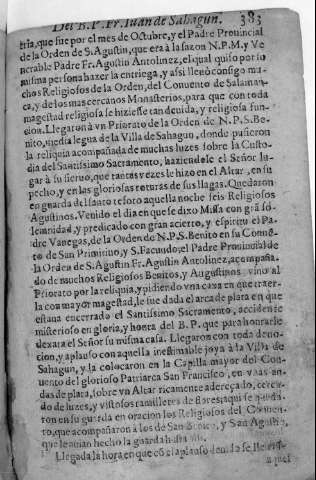 Del B. P. Fr. Iuan de Sahagun. 383
eria, que fue por el mes de Octubre, y el Padre Prouincial
de la Orden de S. Agustin, que era à la sazon N. P. M. y Ve
nerable Padre Fr. Agustin Antolinez, el qual quiso por su
misma persona hazer la entriega, y assi lleuò consigo mu-
chos Religiosos de la Orden, del Conuento de Salaman-
ca, y de los mas cercanos Monasterios, para que con toda
magestad religiosa se hiziesse tan deuida, y religiosa fun-
cion. Llegaron à vn Priorato de la Orden de N. P. S. Be-
nito, media legua de la Villa de Sahagun, donde pusieron
la reliquia acompañada de muchas luzes sobre la Custo-
dia del Santissimo Sacramento, haziendole el Señor lu-
gar à su sieruo, que tantas vezes le hizo en el Altar, en su
pecho, y en las gloriosas roturas de sus llagas. Quedaron
en guarda del santo tesoro aquella noche seis Religiosos
Agustinos. Venido el dia en que se dixo Missa con grã so-
lemnidad, y predicado con gran acierto, y espiritu el Pa-
dre Vanegas, de la Orden de N. P. S. Benito en su Conuẽ-
to de San Primitiuo, y S. Facundo, el Padre Prouincial de
la Orden de S. Agustin Fr. Agustin Antolinez, acompaña-
do de muchos Religiosos Benitos, y Augustinos vino al
Priorato por la reliquia, y pidiendo vna caxa en que traer-
la con mayor magestad, le fue dada el arca de plata en que
estaua encerrado el Santissimo Sacramento, accidente
misterioso en gloria, y honra del B. P. que para honrarle
dexara el Señor su misma casa. Llegaron con toda deuo-
cion, y aplauso con aquella inestimable joya à la Villa de
Sahagun, y la colocaron en la Capilla mayor del Con-
uento del glorioso Patriarca San Francisco, en vnas an-
das de plata, sobre vn Altar ricamente adereçado, cerca-
do de luzes, y vistosos ramilletes de flores, aqui se queda-
ron en su guarda en oracion los Religiosos del Conuen-
to, que acompañaron à los de San Benito, y San Agustin,
que le auian hecho la guarda hasta alli.
Llegada la hora en que cõ el aplauso deuido se